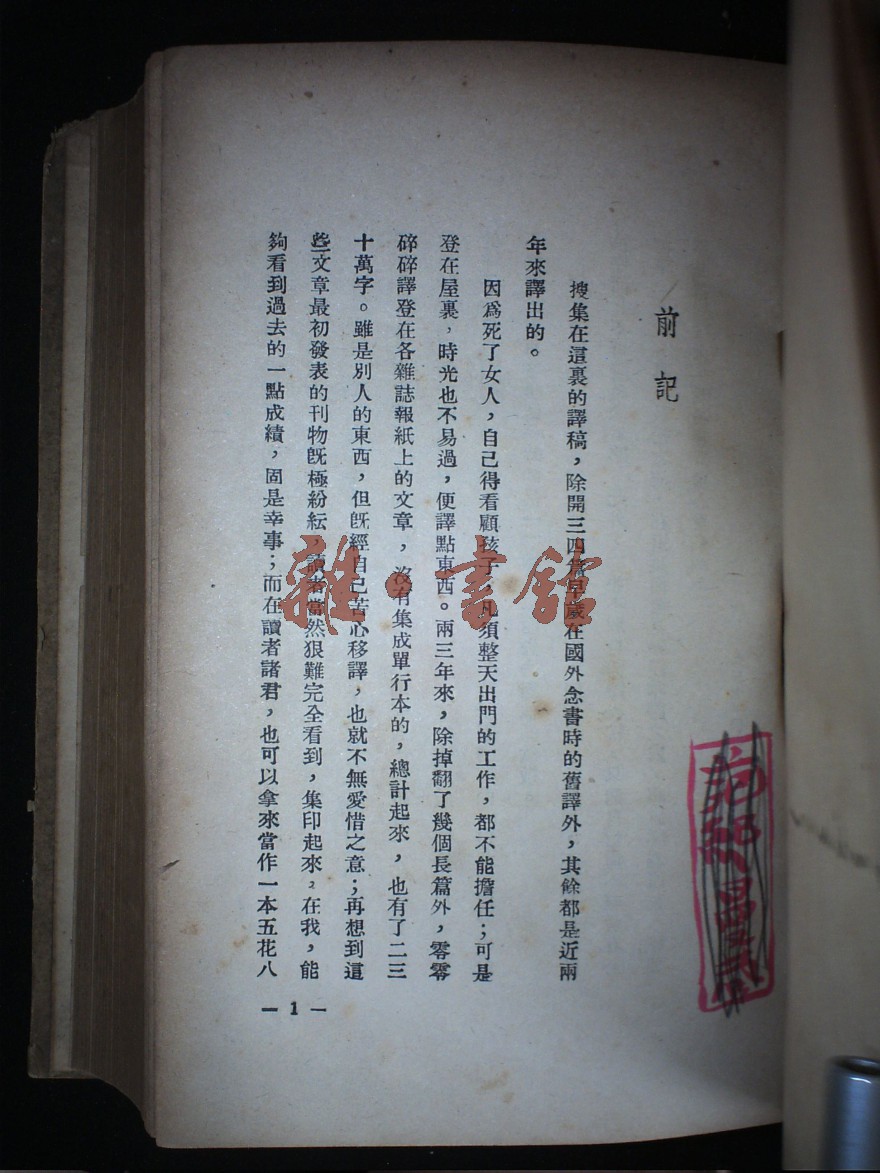 前記
搜集在這裏的譯稿，除開三四篇早歲在國外念書時的舊譯外，其餘都是近兩
年來譯出的。
因爲死了女人，自己得看顧孩子，凡須整天出門的工作，都不能擔任；可是
登在屋裏，時光也不易過，便譯點東西。兩三年來，除掉翻了幾個長篇外，零零
碎碎譯登在各雜誌報紙上的文章，沒有集成單行本的，總計起來，也有了二三
十萬字。雖是別人的東西，但旣經自己苦心移譯，也就不無愛惜之意；再想到這
些文章最初發表的刊物旣極紛紜，讀者當然狠難完全看到，集印起來，在我，能
夠看到過去的一點成績，固是幸事；而在讀者諸君，也可以拿來當作一本五花八
— 1 —
雜·書館